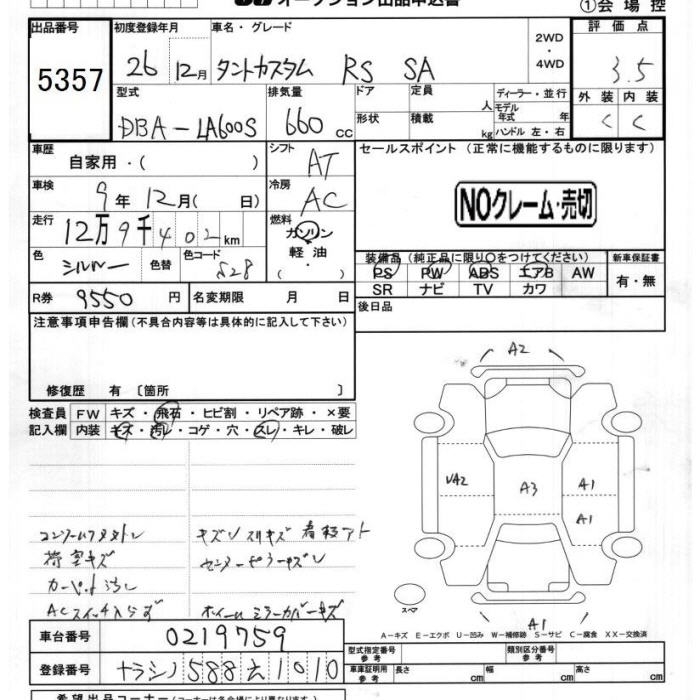 オークション出品申込書
①会場控
出品番号 5357
初度登録年月 26 12月
車名・グレード タントカスタム RS SA
2WD ・ 4WD
評価点 3.5
外装 C 内装 C
型式 DBA-LA600S
排気量 660 cc
ドア 形状
定員 人
積載 kg
ディーラー・並行
モデル年式 年
ハンドル 左・右
車歴 自家用・( )
シフト AT
セールスポイント(正常に機能するものに限ります)
NOクレーム・売切
車検 9年12月( 日)
冷房 AC
走行 12万9千402km
燃料 ガソリン 軽油 ( ・ )
色 シルバー 色替
色コード S28
装備品(純正品に限り○をつけてください)
PS PW ABS エアB AW
SR ナビ TV カワ
新車保証書 有・無
R券 9550円
名変期限 月 日
後日品
注意事項申告欄(不具合内容等は具体的に記入して下さい)
修復歴 有〔箇所 〕
検査員記入欄
FW キズ・飛石・ヒビ割・リペア跡・×要
内装 キズ・汚レ・コゲ・穴・スレ・キレ・破レ
A2
UA2
A3
A1
A1
A1
スペア
荷室キズ
A−キズ E−エクボ U−凹み W−補修跡 S−サビ C−腐食 XX−交換済
車台番号 0219759
登録番号 ナラシノ 588 え 1010
型式指定番号 参考
類別区分番号 参考
車庫証明用 参考 長さ cm 幅 cm 高さ cm
希望出品コーナー(コーナーは各会場により異なります)